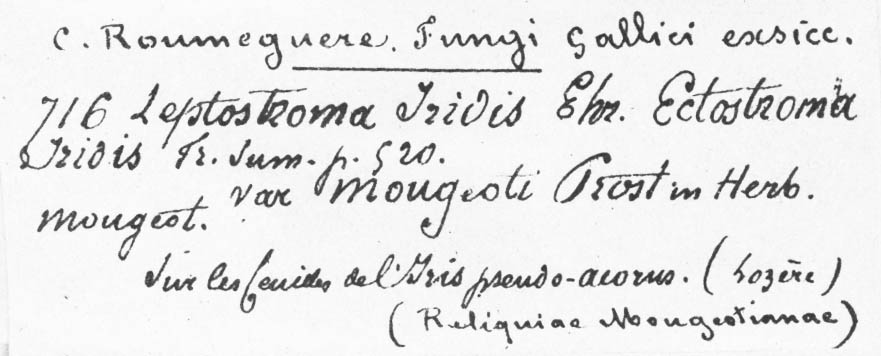 C. Roumeguere. Fungi Gallici exsicc.
716 Leptostroma Iridis Ehr. Ectostroma
Iridis Fr. Sum. p. 520.
var Mougeoti Prost in Herb.
Mougeot.
Sur les feuilles de l'Iris pseudo-acorus. (Lozère)
(Reliquiae Mougeotianae)